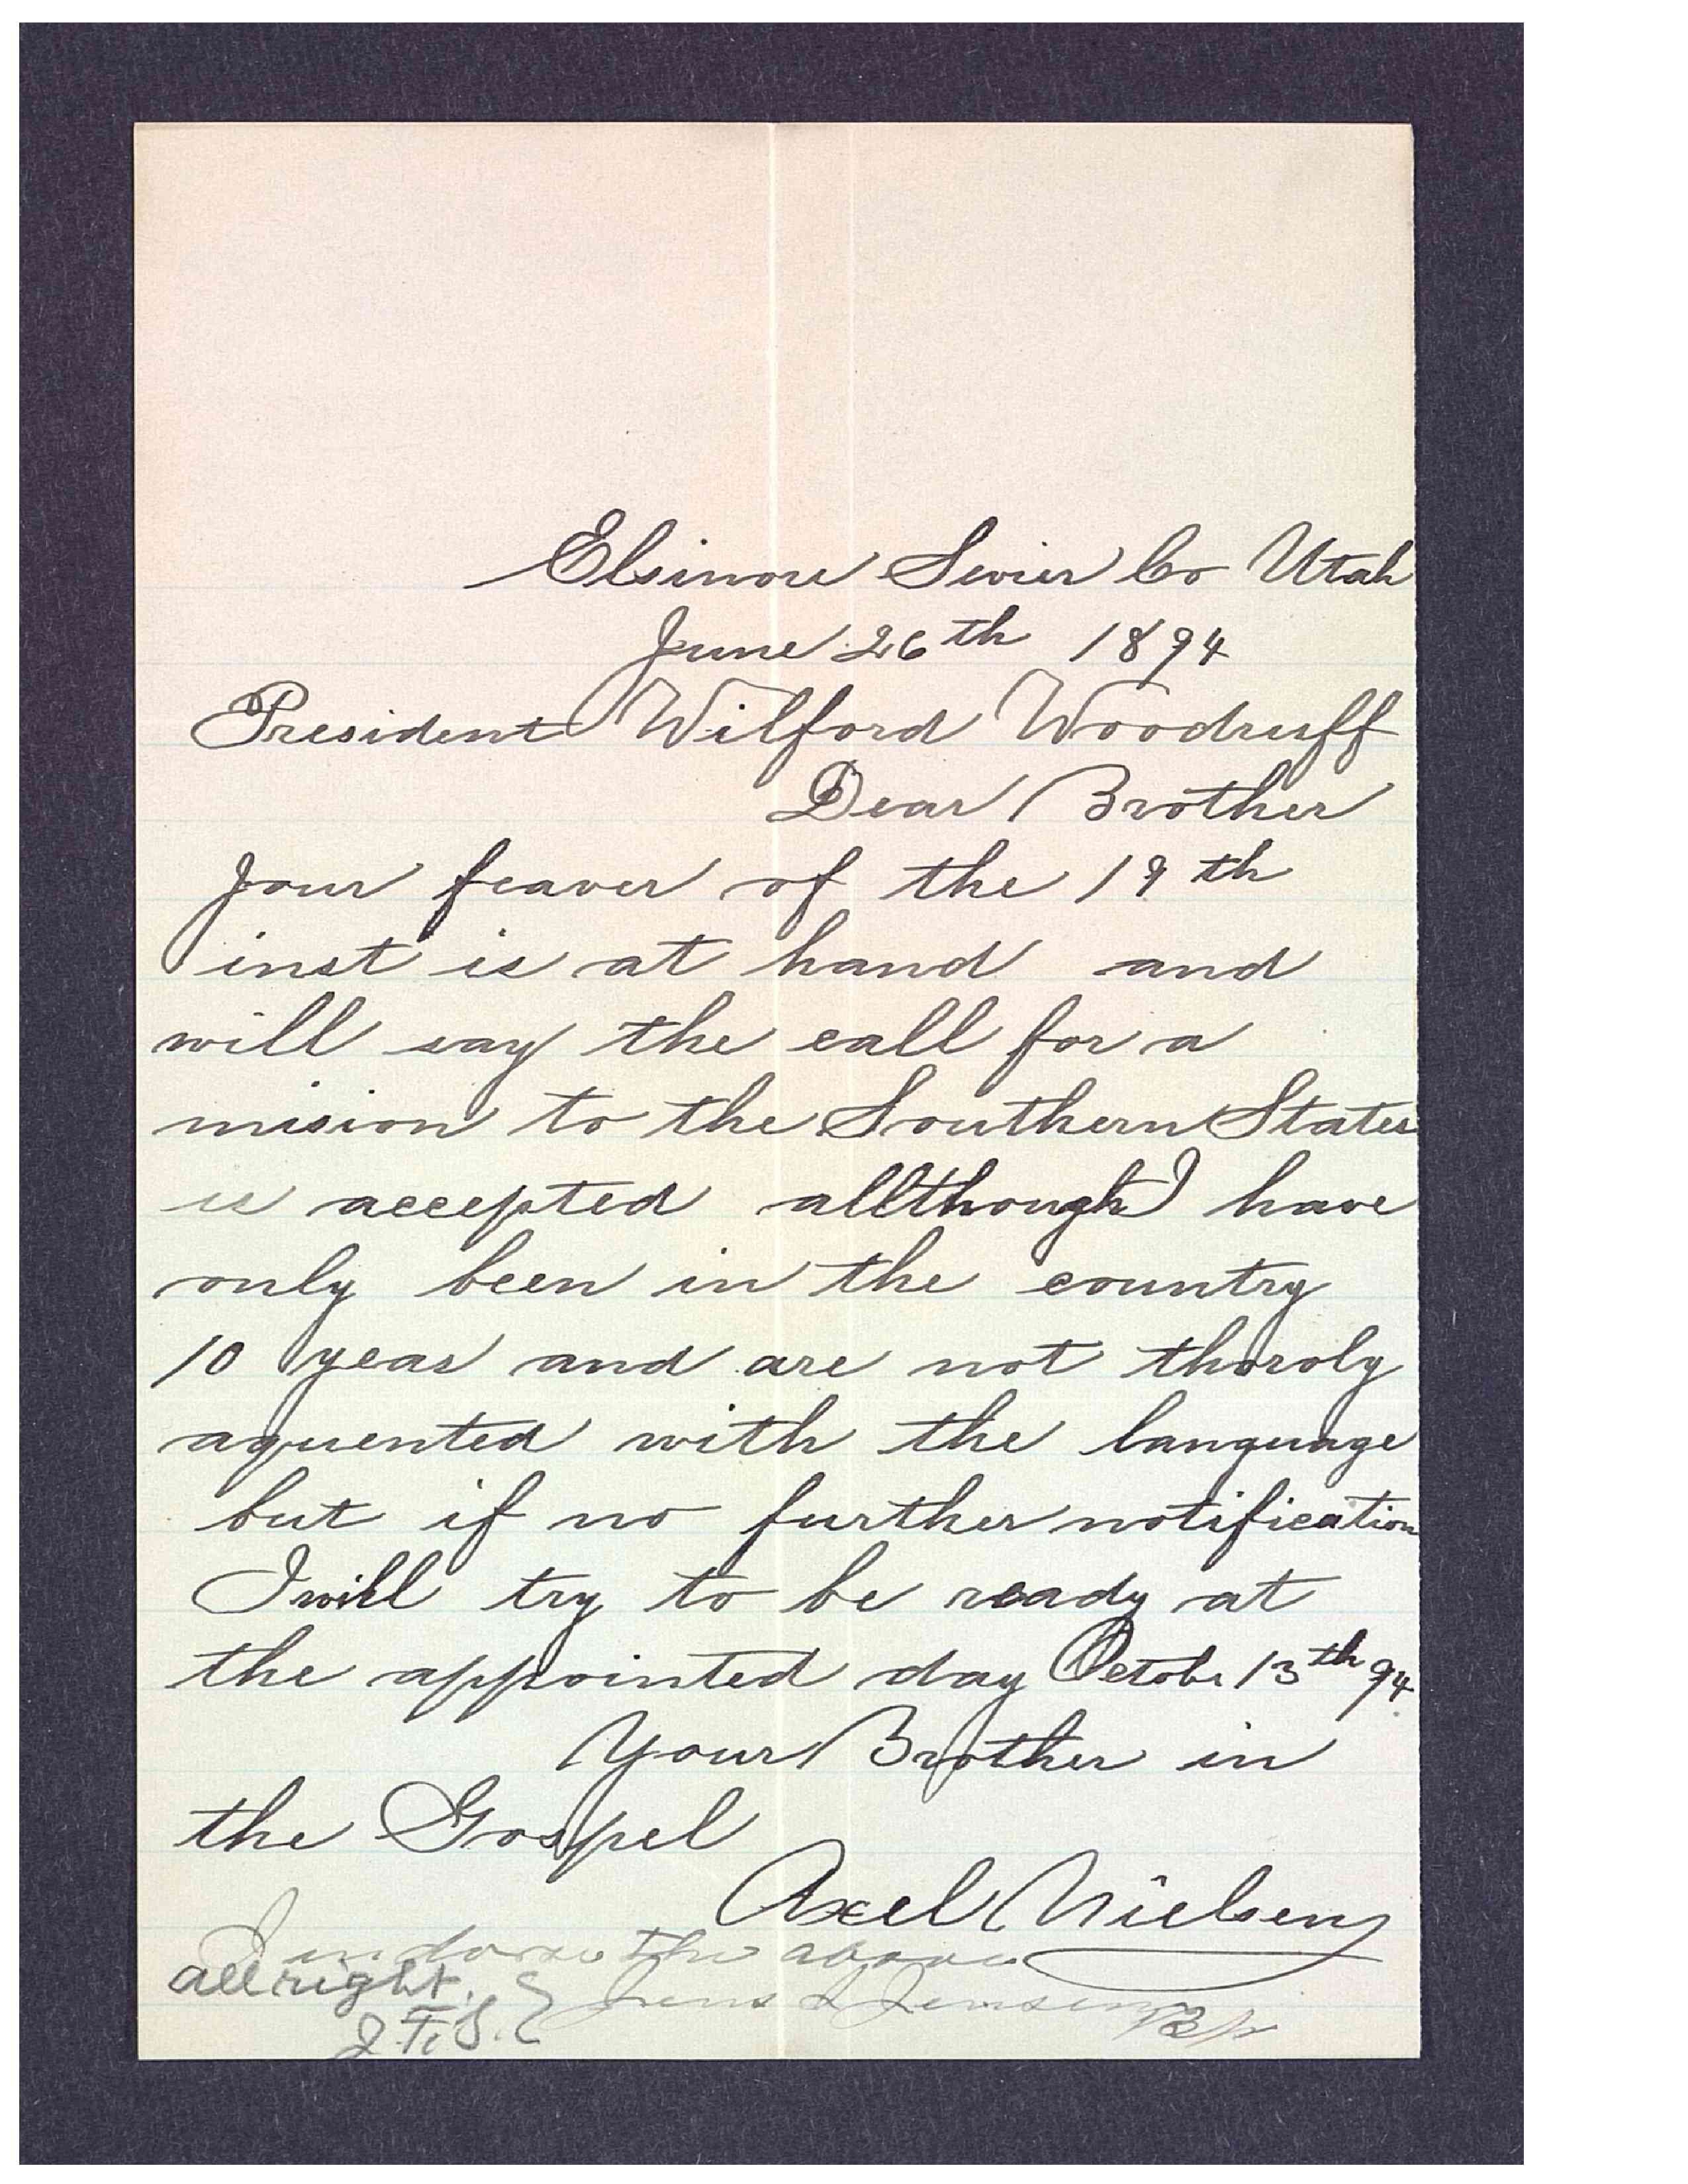 Elsinore Sevier Co Utah
June 26th 1894
President Wilford Woodruff
Dear Brother
Your feaver of the 19th
inst is at hand and
will say the call for a
mision to the Southern States
is accepted allthough I have
only been in the country
10 yeas and are not thoroly
aquented with the language
but if no further notification
I will try to be ready at
the appointed day Octobr 13th 94.
Your Brother in
the Gospel
Axel Nielsen
I indorse the above
Jens I Jensen Bp
all right.
J. F. S.